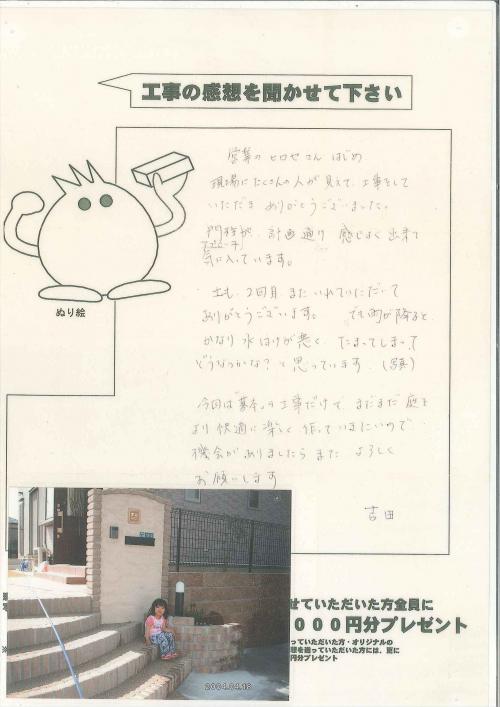 工事の感想を聞かせて下さい
営業の ヒロセさん はじめ
現場にたくさんの人が見えて、工事をして
いただき ありがとうございました。
門柱が、計画通り 感じよく出来て
アプローチ
気に入っています。
土も、2回目、また いれていただいて
ありがとうございます。 でも雨が降ると
かなり水はけが悪く、たまってしまって
どうなのかな?と思っています。(写真)
今回は"基本"の工事だけで、まだまだ庭を
より快適に楽しく作っていきたいので
機会がありましたら また よろしく
お願いします
吉田
ぬり絵
せていただいた方全員に
000円分プレゼント
っていただいた方・オリジナルの
想を送っていただいた方には、更に
円分プレゼント
※
2004.04.18